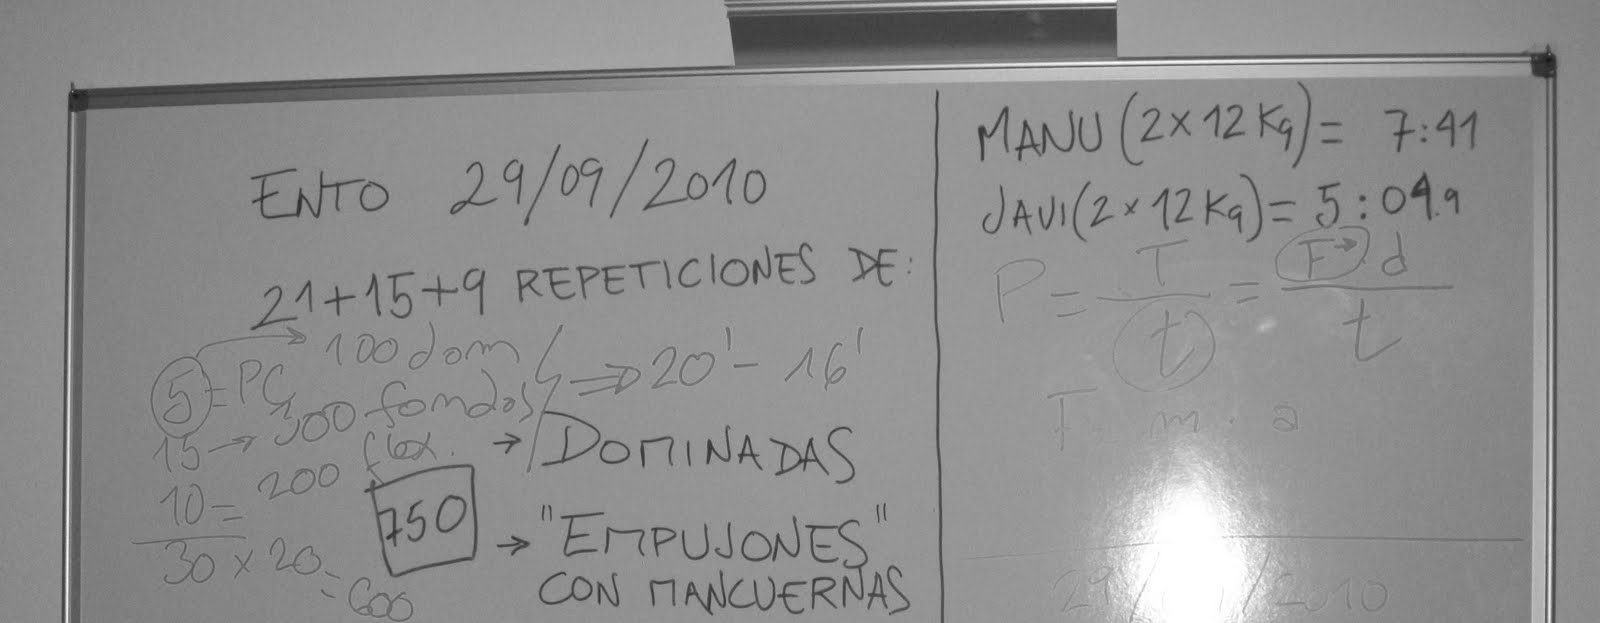 ENTO 29/09/2010
21+15+9 REPETICIONES DE:
5 = PC → 100 dom
⇒ 20' - 16'
15 → 300 fondos
10 = 200 flex.
30 x 20 = 600
750
→ DOMINADAS
→ "EMPUJONES"
CON MANCUERNAS
MANU (2 x 12 Kg) = 7:41
JAVI (2 x 12 Kg) = 5:04.9
P = T / t = F d / t
F = m · a
29/ /2010